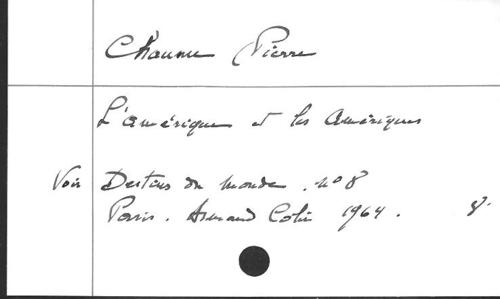 Chaunu Pierre
L'amérique et les amériques
Voir Destins du monde. no 8
Paris. Armand Colin 1964. 8°